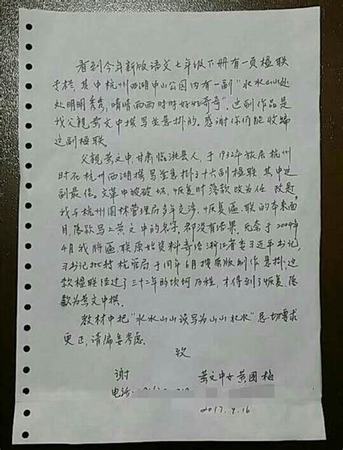 看到今年新版语文七年级下册有一页楹联
于栏,其中杭州西湖中山公园内有一副"水水山山处
处明明秀秀,晴晴雨雨时时好好奇奇",这副作品是
我父亲黄文中撰写并悬挂的。感谢你们能收编
这副楹联。
父亲黄文中,甘肃临洮县人,于1932年旅居杭州
时在杭州西湖撰写并悬挂了十六副楹联,其中这
副最佳。文革中被破坏,恢复时落款改为佚
我与杭州园林管理局多年交涉,恢复匾联的本来面
目,落款写上黄文中的名字,都没有结果,
4月我将匾联原北资料寄给浙江省委习近平书记,
习书记批转杭管局于同年6月按原版制作悬挂,这
款楹联经过了三十几年的坎坷历程,才得到了恢复落
款为黄文中撰。
教材中把"水水山山误写为山山水水"恳切要求
更正,请编委考虑。
致
谢 黄文中女黄国梅
电话:
2017.9.16